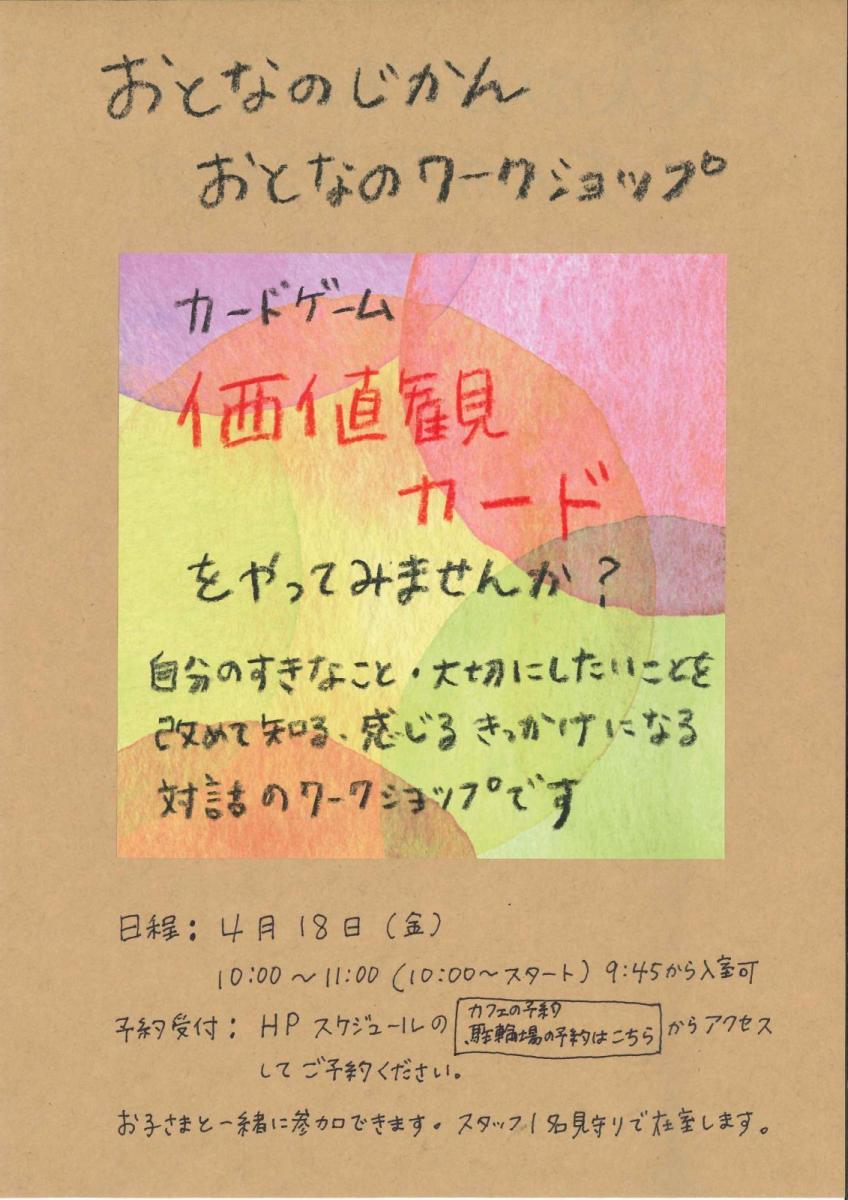 おとなのじかん
おとなのワークショップ
カードゲーム
価値観
カード
をやってみませんか?
自分のすきなこと・大切にしたいことを
改めて知る、感じるきっかけになる
対話のワークショップです
日程: 4月18日(金)
10:00～11:00 (10:00～スタート) 9:45から入室可
予約受付: HPスケジュールの カフェの予約 からアクセス
駐輪場の予約はこちら
してご予約ください。
お子さまと一緒に参加できます。スタッフ1名見守りで在室します。